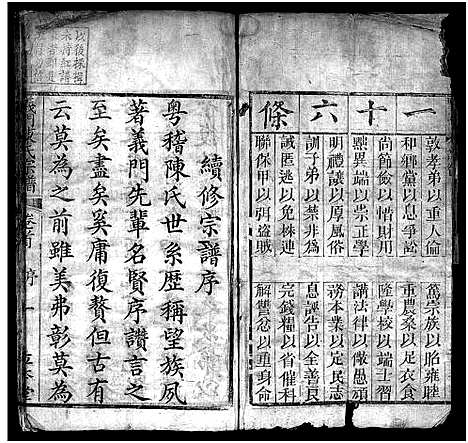 一十六條
敦孝弟以重人倫 篤宗族以昭雍睦
和鄉黨以息爭訟 重農桑以足衣食
尚節儉以惜財用 隆學校以端士習
黜異端以崇正學 講法律以儆愚頑
明禮讓以厚風俗 務本業以定民志
訓子弟以禁非為 息誣告以全善良
誡匿逃以免株連 完錢糧以省催科
聯保甲以弭盜賊 解讐忿以重身命
續修宗譜序
粤稽陳氏世系歷稱望族夙
著義門先輩名賢序讚言之
至矣盡矣奚庸復贅但古有
云莫為之前雖美弗彰莫為
宗譜 卷首 序 一
以後採輯